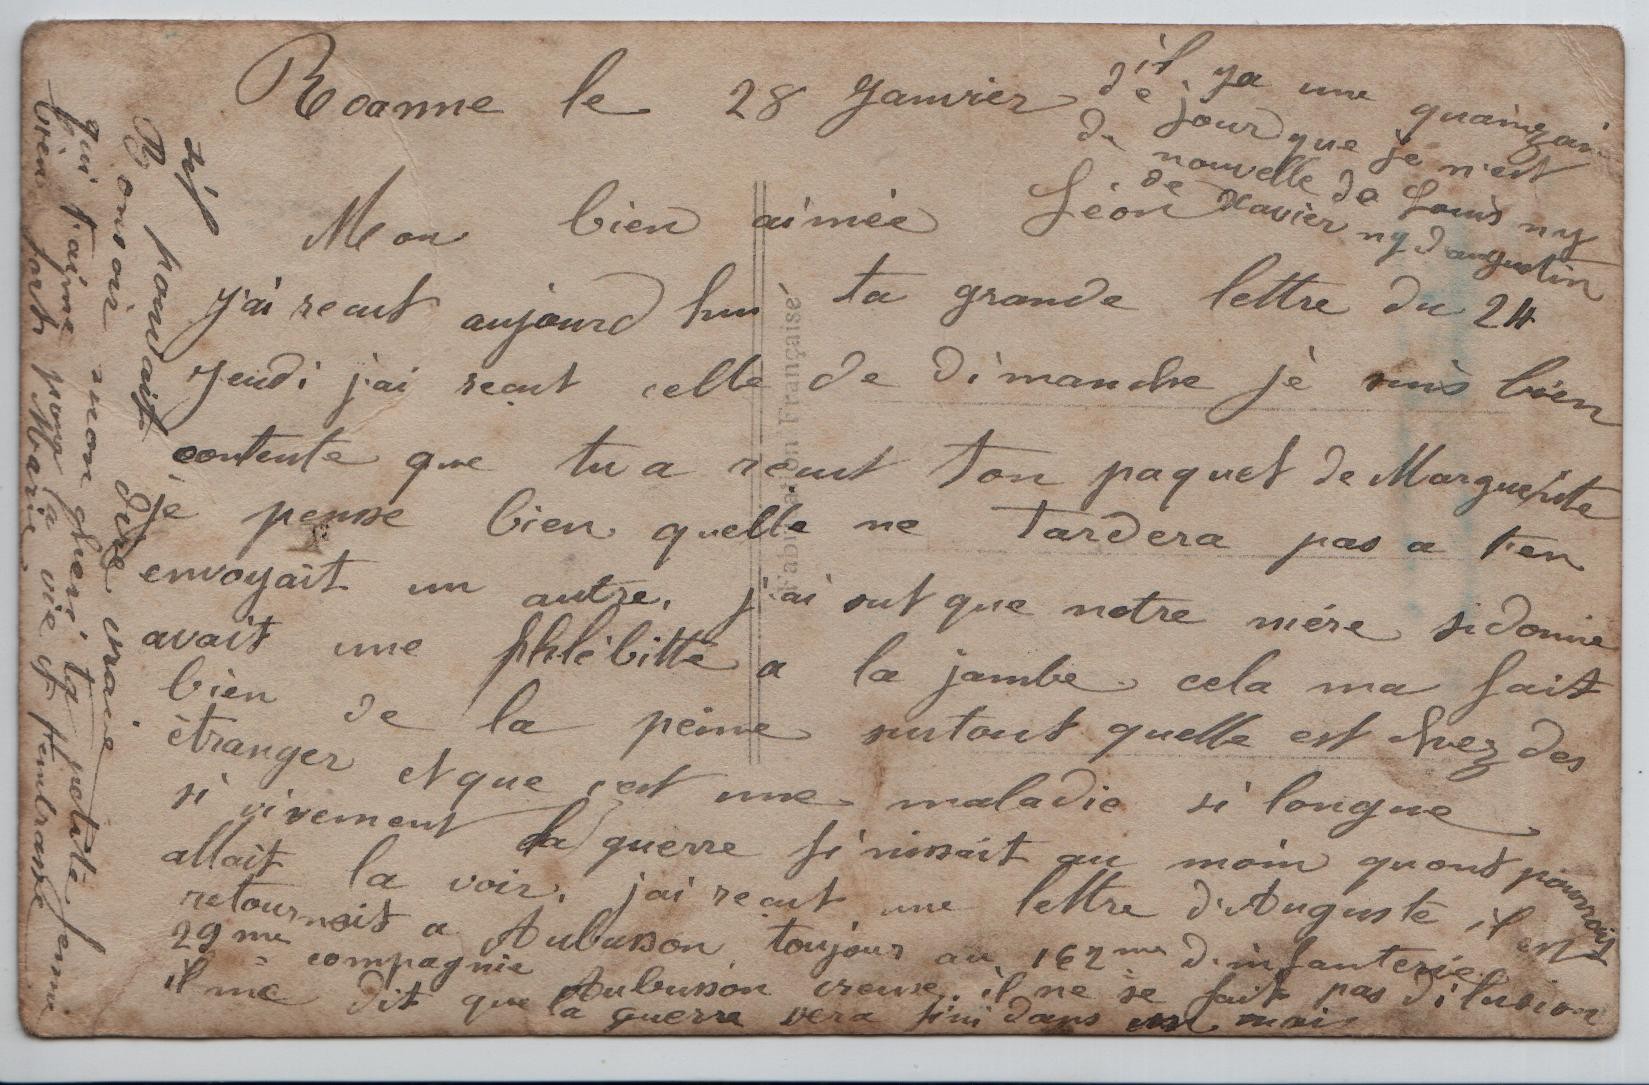 Roanne le 28 Janvier
Mon bien aimée Léon
j'ai reçut aujourd hui ta grande lettre du 24
jeudi j'ai reçut celle de dimanche je suis bien
contente que tu a reçut ton paquet de Marguerite
je pense bien quelle ne tardera pas a t'en
envoyait un autre, j'ai sut que notre mére sidonie
avait une phlébitte a la jambe cela ma fait
bien de la peine surtout quelle est chez des
étranger et que c'est une maladie si longue
si vivement la guerre finissait au moin quont pourrais
allait la voir, j'ai reçut une lettre d'Auguste il est
retournait a Aubusson toujour au 162me d'infanterie
29me compagnie Aubusson creuse, il ne se fait pas d'ilusion
il me dit que la guerre sera fini dans mois
s'il pouvait dire vraie
Bonsoir mon cheri ta petite femme
qui t'aime pour la vie et t'embrasse
bien fort Marie
il ya une quainzai
de jour que je n'est
de nouvelle de Louis ny
de Xavier ny d'augustin
Fabrication Française